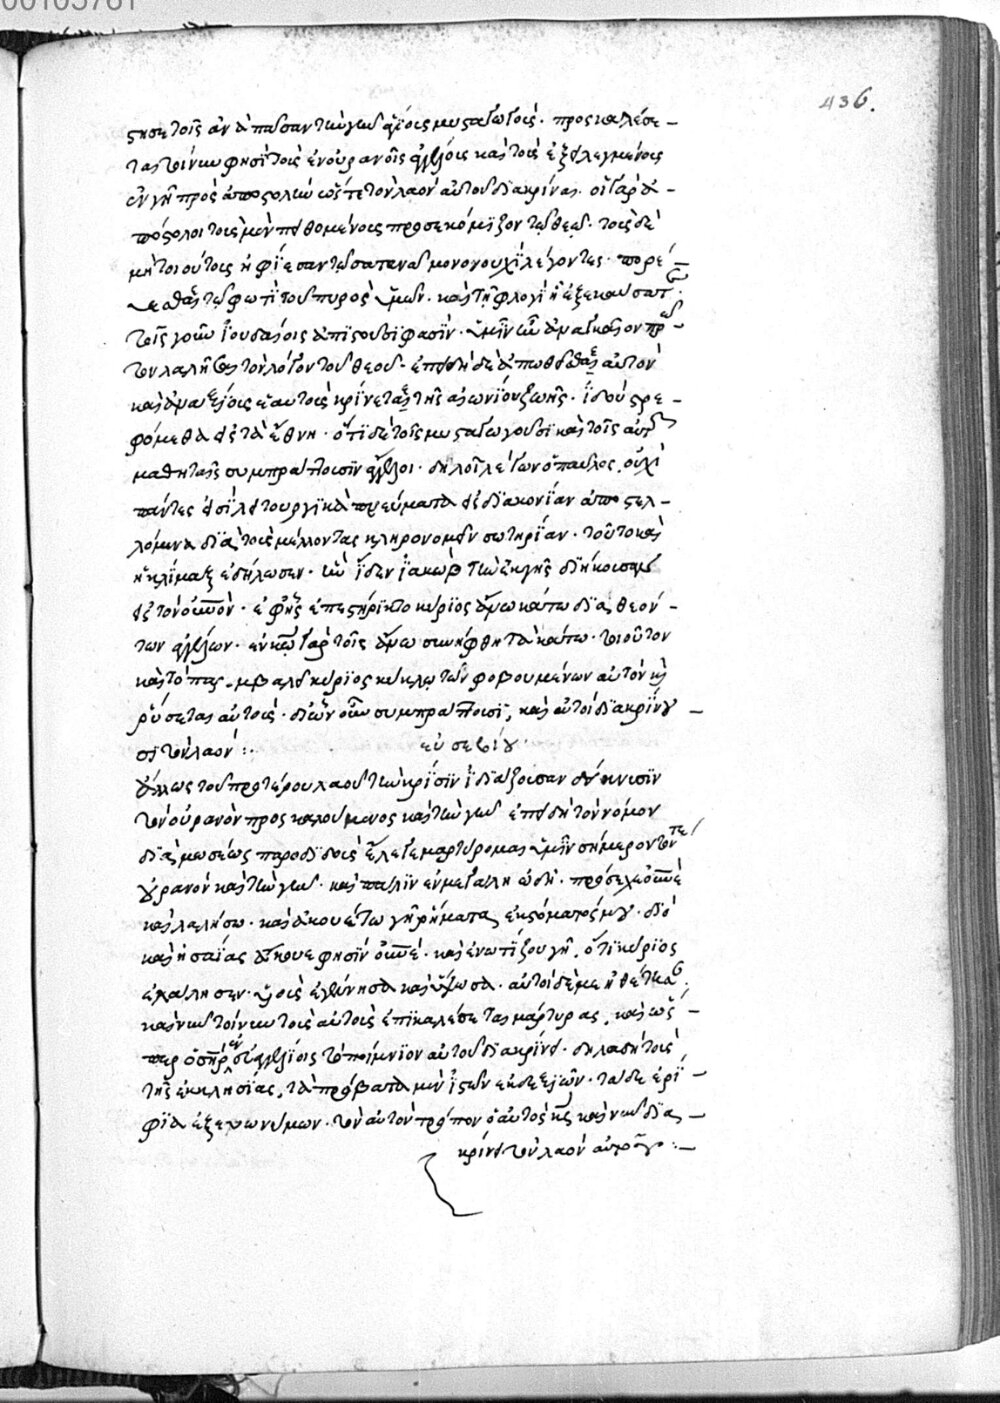 436.
στησε τοῖς ἀνὰ πᾶσαν τὴν γῆν ἁγίοις μυσταγωγοῖς. προσκαλέσε-
ται τοίνυν φησὶ τοὺς ἐν οὐρανοῖς ἀγγέλους καὶ τοὺς ἐξειλεγμένους
ἐν γῇ πρὸς ἀποστολὴν ὥστε τὸν λαὸν αὐτοῦ διακρῖναι. οἱ γὰρ ἀ-
πόστολοι τοὺς μὲν πειθομένους προσεκόμιζον τῷ θεῷ. τοὺς δὲ
μὴ τοιούτους ἠφίεσαν τῷ σατανᾷ μονονουχὶ λέγοντες. πορε-
εσθαι τῷ φωτὶ τοῦ πυρὸς ὑμῶν. καὶ τῇ φλογὶ ᾗ ἐξεκαύσατε.
τοῖς γοῦν Ἰουδαίοις ἀπιστοῦσι φασίν. ὑμῖν ἦν ἀναγκαῖον πρῶ-
τον λαληθῆναι τὸν λόγον τοῦ θεοῦ. ἐπειδὴ δὲ ἀπωθεῖσθαι αὐτὸν
καὶ ἀναξίους ἑαυτοὺς κρίνετε τῆς αἰωνίου ζωῆς. ἰδοὺ στρε-
φόμεθα εἰς τὰ ἔθνη. ὅτι δὲ τοῖς μυσταγωγοῦσι καὶ τοῖς αὐτῶν
μαθηταῖς συμπράττουσιν ἄγγελοι. δηλοῖ λέγων ὁ παῦλος οὐχὶ
πάντες εἰσὶ λειτουργικὰ πνεύματα εἰς διακονίαν ἀποστελ-
λόμενα διὰ τοὺς μέλλοντας κληρονομεῖν σωτηρίαν. τοῦτο καὶ
ἡ κλίμαξ ἐδήλωσεν. ἣν ἶδεν ἰακὼβ τὴν ἐκ γῆς διήκουσαν
εἰς τὸν οὐνόν. ἐφ' ἧς ἐπεστήρικτο κύριος ἄνω κάτω διαθεόν-
των ἀγγέλων. ἐν κῷ γὰρ τοῖς ἄνω συνήφθη τὰ κάτω. τοιοῦτον
καὶ τὸ παρεμβαλεῖ κύριος κύκλῳ τῶν φοβουμένων αὐτὸν καὶ
ῥύσεται αὐτούς. δι' ὧν οὖν συμπράττουσι, καὶ αὐτοὶ διακρίνου-
σι τὸν λαόν:
εὐσεβίου.
ἄλλως τοῦ προτέρου λαοῦ τὴν κρίσιν ἰδιάζουσαν
τὸν οὐρανὸν προσκαλούμενος καὶ τὴν γῆν ἐπειδὴ τὸν νόμον
διὰ μωσέως παραδιδοὺς ἔλεγε μαρτύρομαι ὑμῖν σήμερον τόν τε
οὐρανὸν καὶ τὴν γῆν. καὶ πάλιν ἐν μεγάλῃ ᾠδῇ. πρόσεχε οὐνὲ
καὶ λαλήσω. καὶ ἀκουέτω γῆ ῥήματα ἐκ στόματός μου. διὸ
καὶ ἠσαΐας ἄκουε φησὶν οὐνέ. καὶ ἐνωτίζου γῆ. ὅτι κύριος
ἐλάλησεν. υἱοὺς ἐγέννησα καὶ ὕψωσα. αὐτοὶ δέ με ἠθέτησαν.
καὶ νῦν τοίνυν τοὺς αὐτοὺς ἐπικαλέσεται μάρτυρας, καὶ ὥσ-
περ ὁ σὴρ ἐν εὐαγγελίοις τὸ ποίμνιον αὐτοῦ διακρίνει. δηλαδὴ τοὺς
τῆς ἐκκλησίας, τὰ πρόβατα μὲν ἱστῶν ἐκ δεξιῶν. τὰ δὲ ἐρί-
φια ἐξ εὐωνύμων. τὸν αὐτὸν τρόπον ὁ αὐτὸς κς καὶ νῦν δια-
κρίνει τὸν λαὸν αὐτοῦ:-